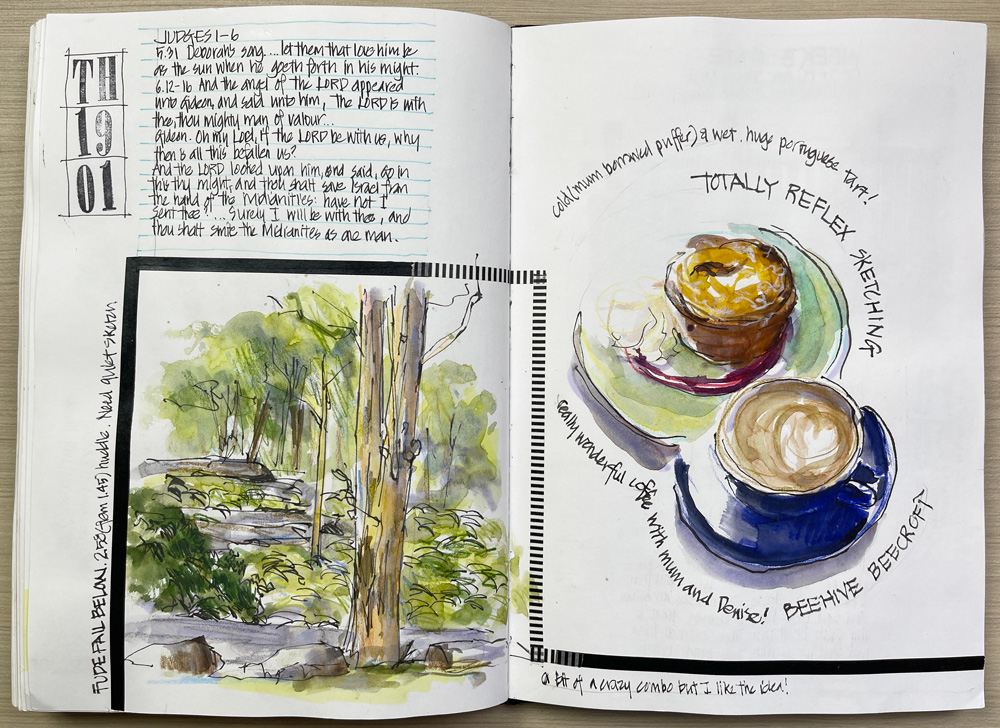 TH
19
01
JUDGES 1-6
5.31 Deborah's song... let them that love him be
as the sun when he goeth forth in his might.
6.12-16 And the angel of the LORD appeared
unto Gideon, and said unto him, The LORD is with
thee, thou mighty man of valour...
Gideon. Oh my Lord, if the LORD be with us, why
then is all this befallen us?
And the LORD looked upon him, and said, Go in
this thy might, and thou shalt save Israel from
the hand of the Midianites: have not I
sent thee?'... Surely I will be with thee, and
thou shalt smite the Midianites as one man.
FUDE FAIL BELOW. 2.58 (9am 1.45) huddle. Need quiet sketch
cold (mum borrowed puffer) & wet. huge portuguese tart!
TOTALLY REFLEX SKETCHING
really wonderful coffee with mum and Denise! BEEHIVE BEECROFT
a bit of a crazy combo but I like the idea!